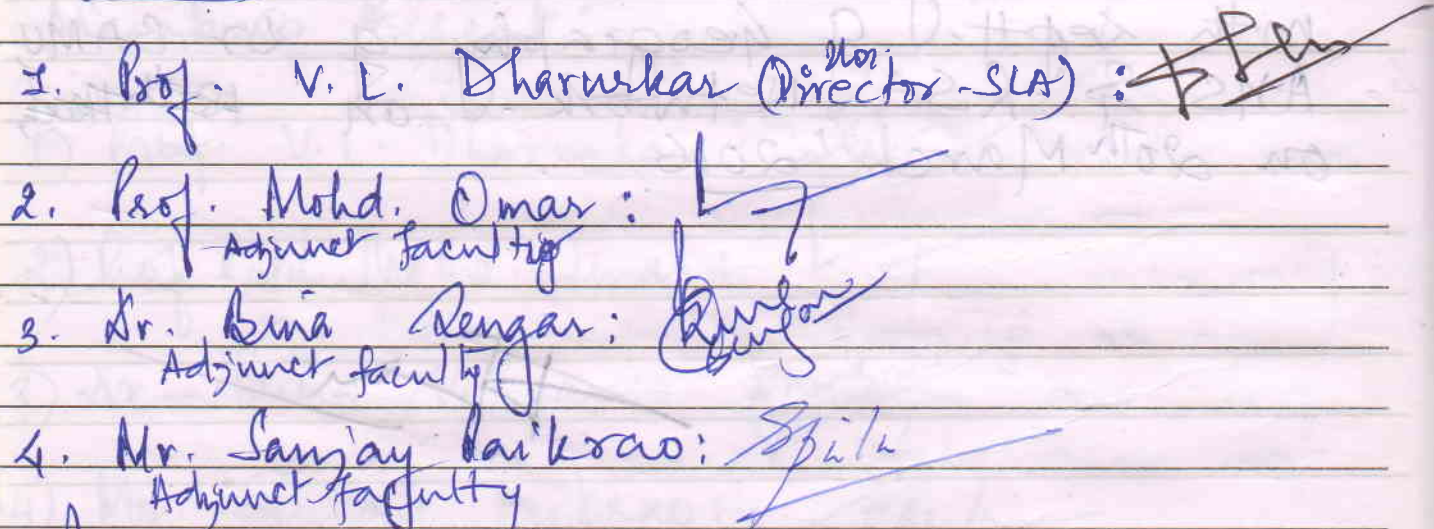 Hon.
1. Prof. V. L. Dharurkar (Director - SLA) :
2. Prof. Mohd. Omar :
Adjunct faculty
3. Dr. Bina Sengar :
Adjunct faculty
4. Mr. Sanjay Paikrao :
Adjunct faculty